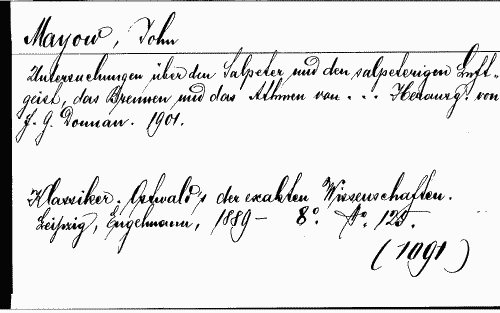 Mayow, John
Untersuchungen über den Salpeter und den salpeterigen Luft-
geist, das Brennen und das Athmen von . . . Herausg. von
F. G. Donnan. 1901.
Klassiker. Ostwald's der exakten Wissenschaften.
Leipzig, Engelmann, 1889- 8º. No. 125.
(1091)